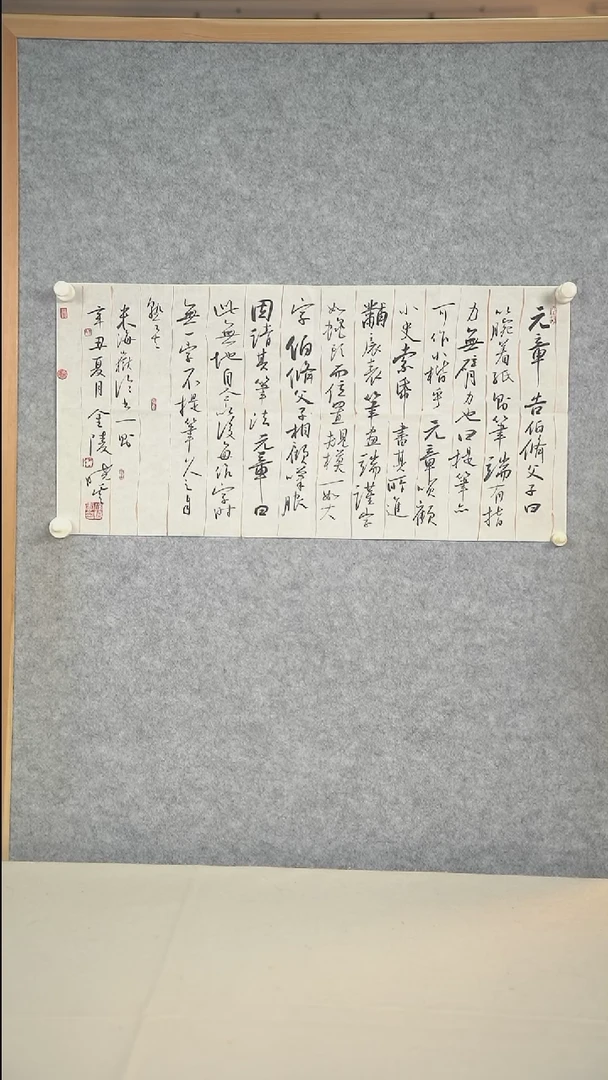 元章告伯脩父子曰
以腕着紙則筆端有指
力無臂力也曰提筆亦
可作小楷乎元章笑顧
小史索紙書其所進
黼扆表筆畫端謹字
如蠅頭而位置規模一如大
字伯脩父子相顧嘆服
因請其筆法元章曰
此無他自今以後每作字時
無一字不提筆久之自
熟矣
米海嶽論書一則
辛丑夏月金陵